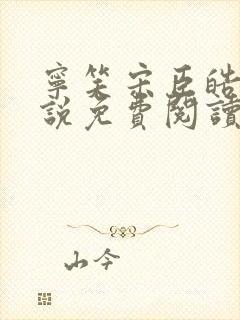 寧笑宋臣皓
說免費閱讀
山今